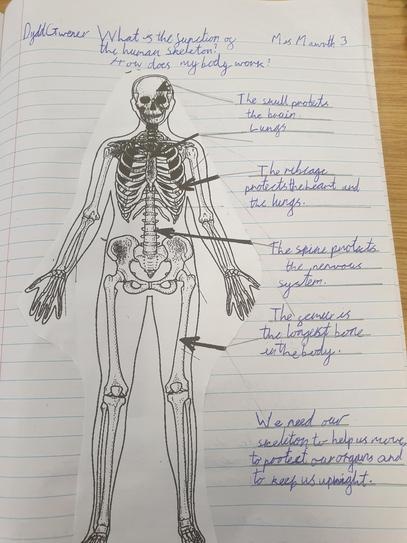 Dydd Gwener What is the function of Mas Mawrth 3
the human skeleton?
How does my body work?
The skull protects
the brain.
Lungs
The ribcage
protects the heart and
the lungs.
The spine protects
the nervous
system.
The femur is
the longest bone
in the body.
We need our
skeleton to help us move
to protect our organs and
to keep us upright.